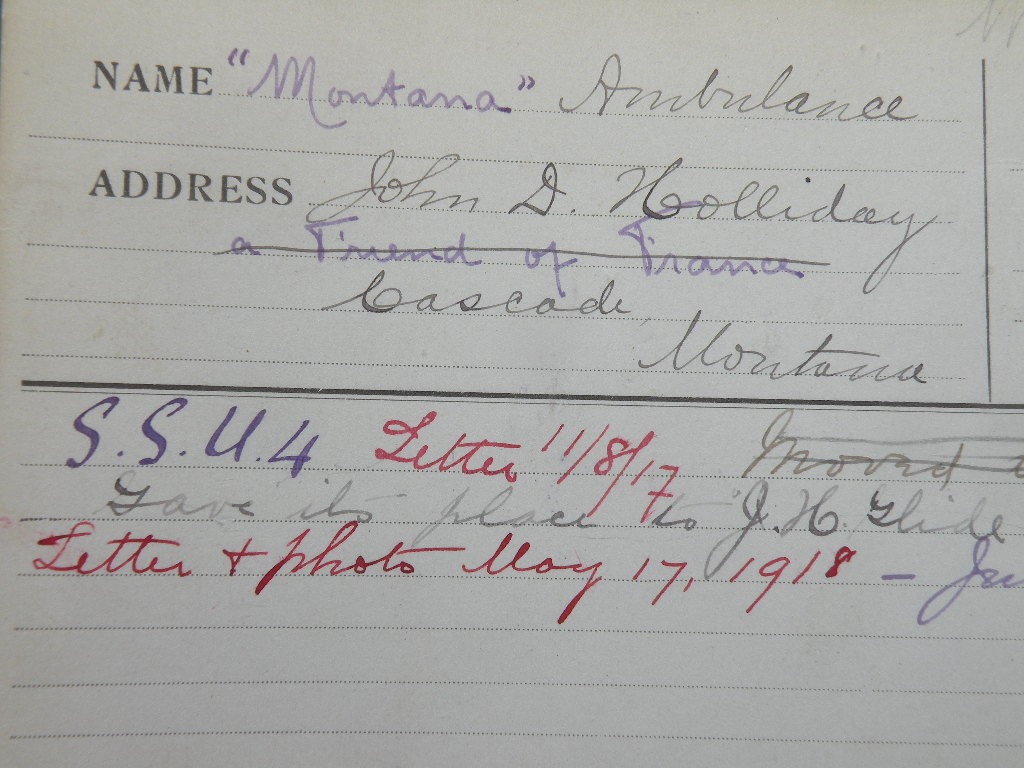 NAME "Montana" Ambulance
ADDRESS John D. Holliday
a Friend of France
Cascade,
Montana
S.S.U.4 Letter 11/8/17 Moved
Gave its place to "J. H. Glide
Letter + photo May 17, 1918 –